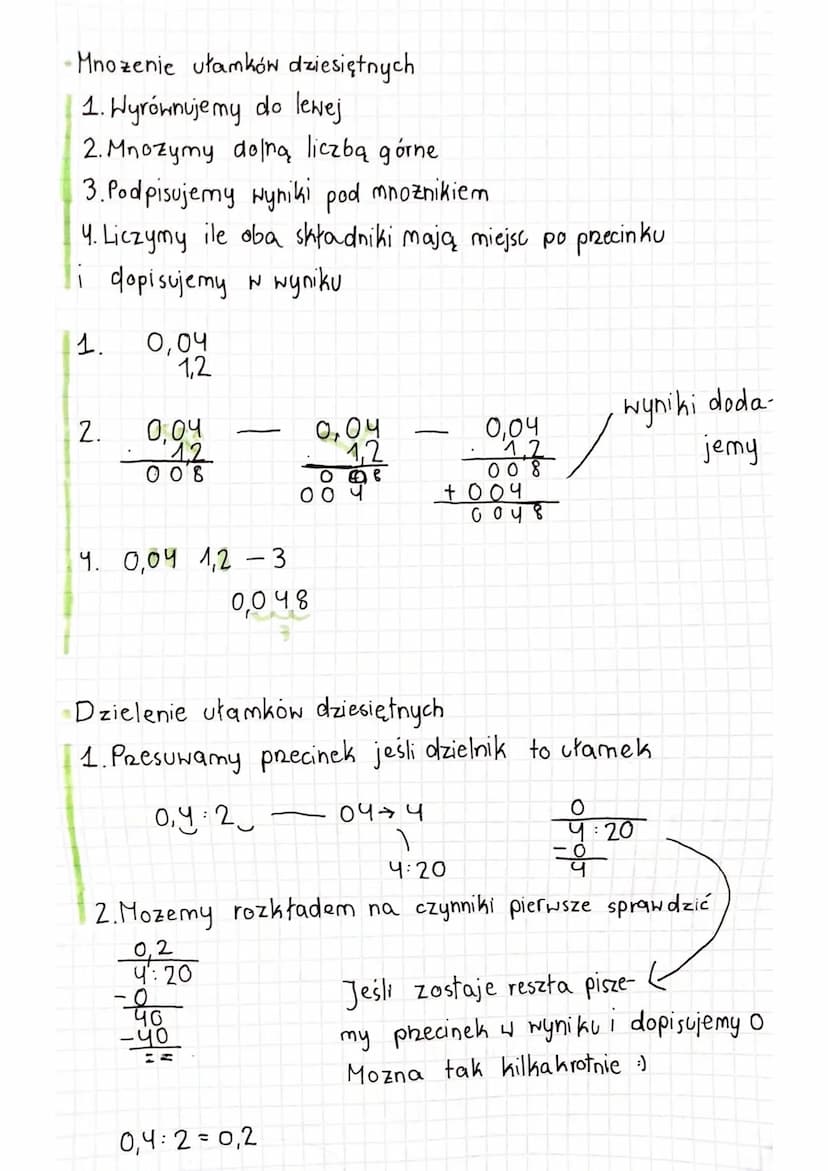 Mnożenie ułamków dziesiętnych
1. Wyrównujemy do lewej
2. Mnożymy dolną liczbą górne
3. Podpisujemy wyniki pod mnożnikiem
4. Liczymy ile oba składniki mają miejsc po przecinku
i dopisujemy w wyniku
1. 0,04
1,2
2. 0,04 — 0,04 — 0,04
. 1,2 . 1,2 . 1,2
008 008 008
004 + 004
0048
wyniki doda-
jemy
4. 0,04 1,2 - 3
0,048
3
Dzielenie ułamków dziesiętnych
1. Przesuwamy przecinek jeśli dzielnik to ułamek
0,4 : 2 — 04 → 4
4:20
0
4:20
-0
4
2. Mozemy rozkładem na czynniki pierwsze sprawdzić
0,2
4:20
-0
40
-40
==
Jeśli zostaje reszta pisze-
my przecinek w wyniku i dopisujemy 0
Mozna tak kilkakrotnie :)
0,4 : 2 = 0,2